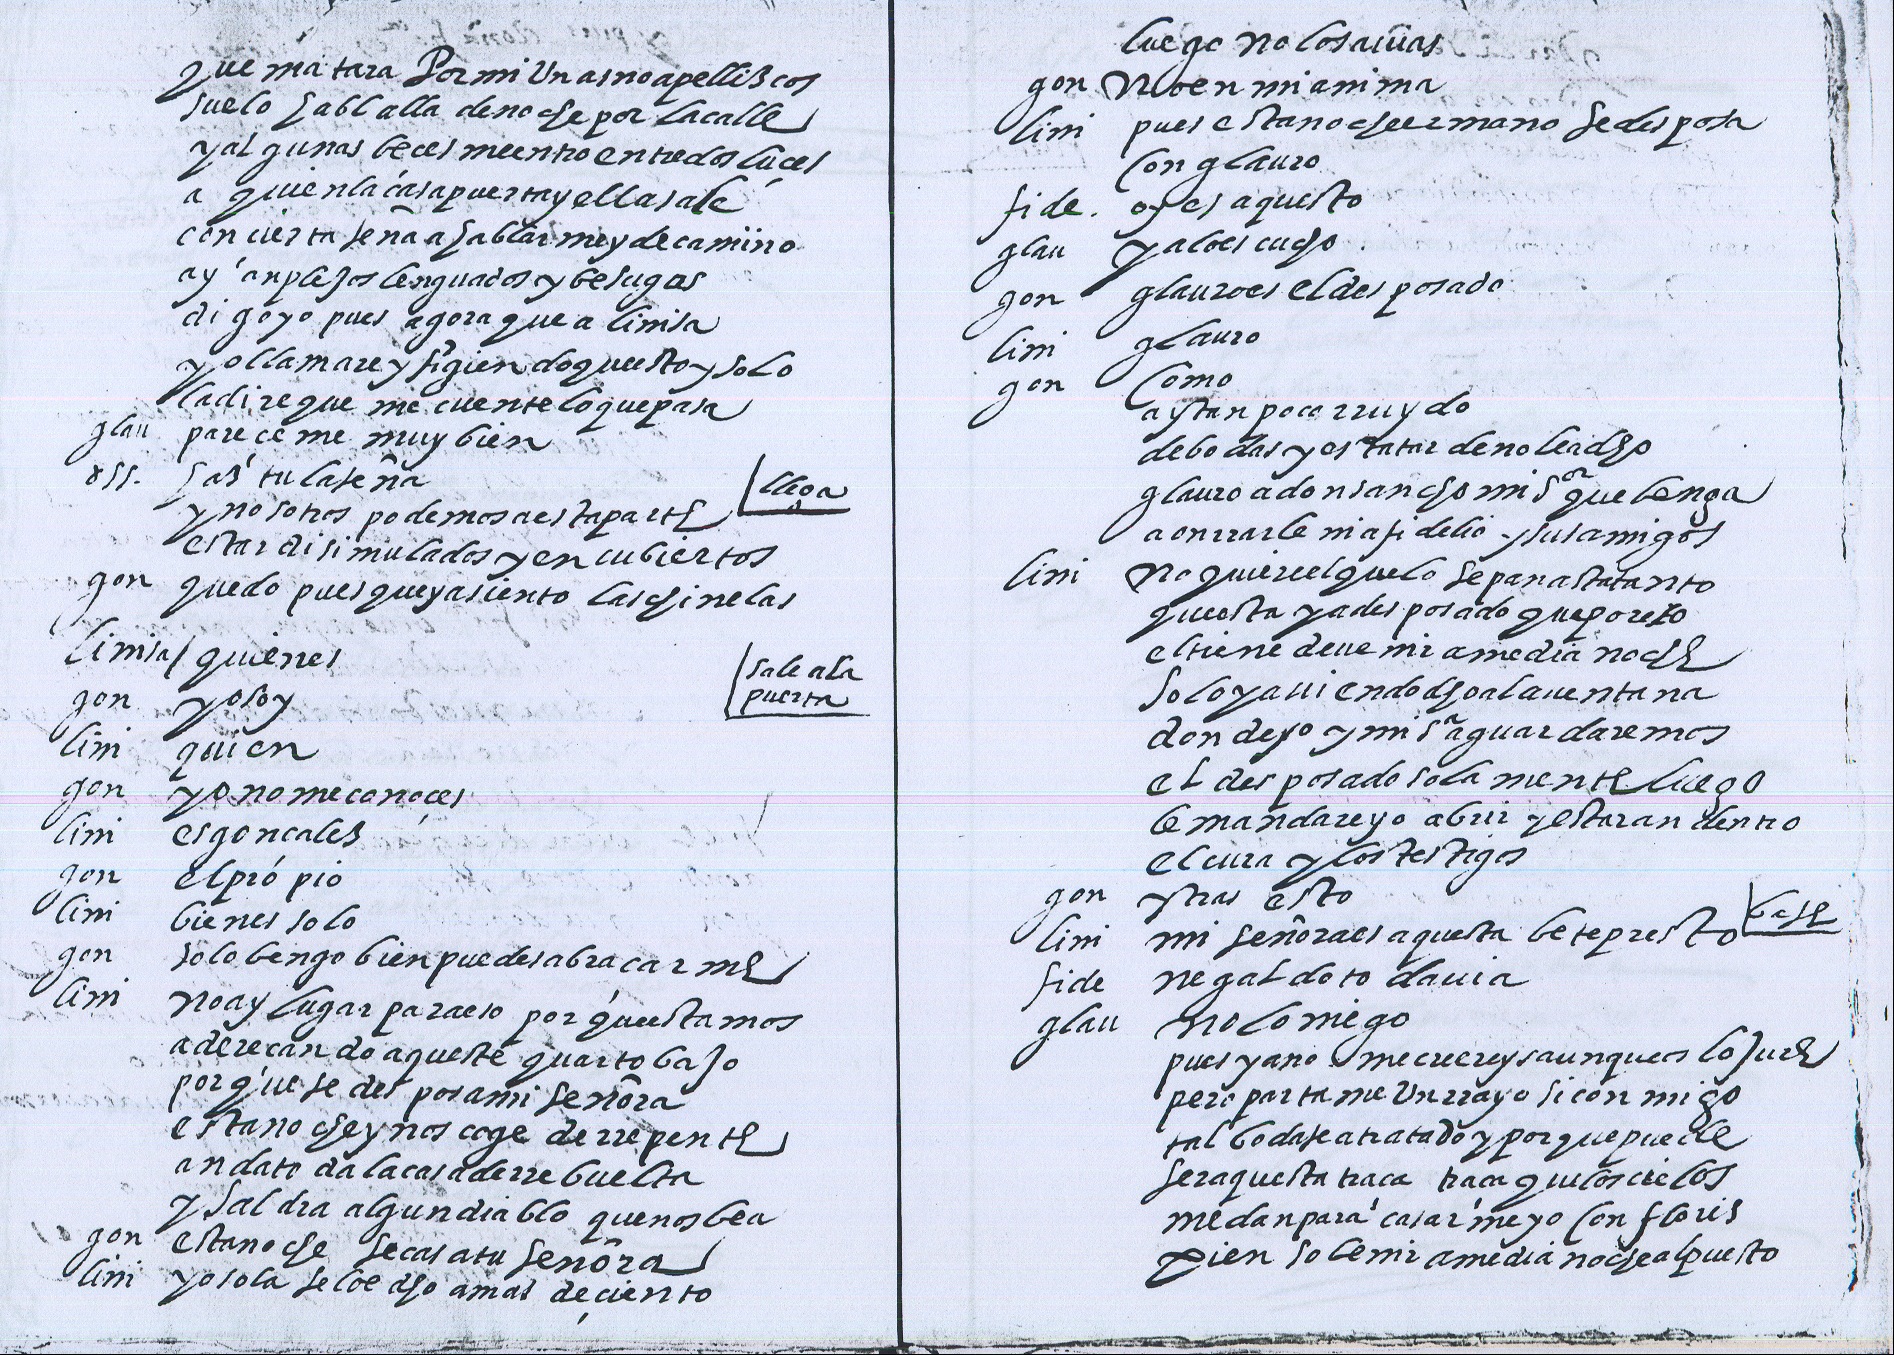 que matara Por mi Un asno a pelliscos
suelo hablalla de noche por la calle
y algunas beces me entro entre dos luces
a quien la casapuerta y ella sale
con cierta seña a hablarme y de camino
ay lenguados y besugos
digo yo pues agora que a linisa
yo llamare y figiendo questoy solo
la dire que me cuente lo que pasa
glau pareceme muy bien
haz tu la seña
llega
y nosotros podemos a esta parte
estar disimulados y encubiertos
gon quedo pues que ya siento las chinelas
linisa/ quien es
sale a la
puerta
gon yo soy
lini quien
gon yo no me conoces
lini es goncales
gon el propio
lini bienes solo
gon solo bengo bien puedes abracarme
lini no ay lugar para eso porquestamos
aderecando aqueste quarto bajo
porque se desposa mi señora
esta noche y nos coge de rrepente
anda toda la casa de rrebuelta
y saldra algun diablo que nos bea
gon esta noche se casa tu señora
lini yo sola se lo e dho a mas de ciento
luego no lo sauias
gon No en mi anima
lini pues esta noche ermano se desposa
con glauro
fide. oyes aquesto
glau ya lo escucho
gon glauro es el desposado
lini glauro
gon como
ay tan poco rruydo
de bodas y es tatar de no le a dho
glauro a don sancho mi sor que benga
a onrrarle ni a fidelio y sus amigos
lini no quiere el quelo sepan asta tanto
questa ya desposado que por esto
el tiene de uenir a media noche
solo ya ui endo dho a la uentana
donde yo y mi sa aguardaremos
el desposado solamente luego
le mandare yo abrir y estaran dentro
el cura y los testigos
gon y tras esto
lini mi señora es aquesta bete presto
base
fide negaldo todauia
glau no lo niego
pues ya no me creereys aunque os lo jure
pero partame Un rrayo si conmigo
tal boda se a tratado y porque puede
ser aquesta traca traca que los cielos
me dan para casarme yo con floris
pienso benir a media noche al puesto